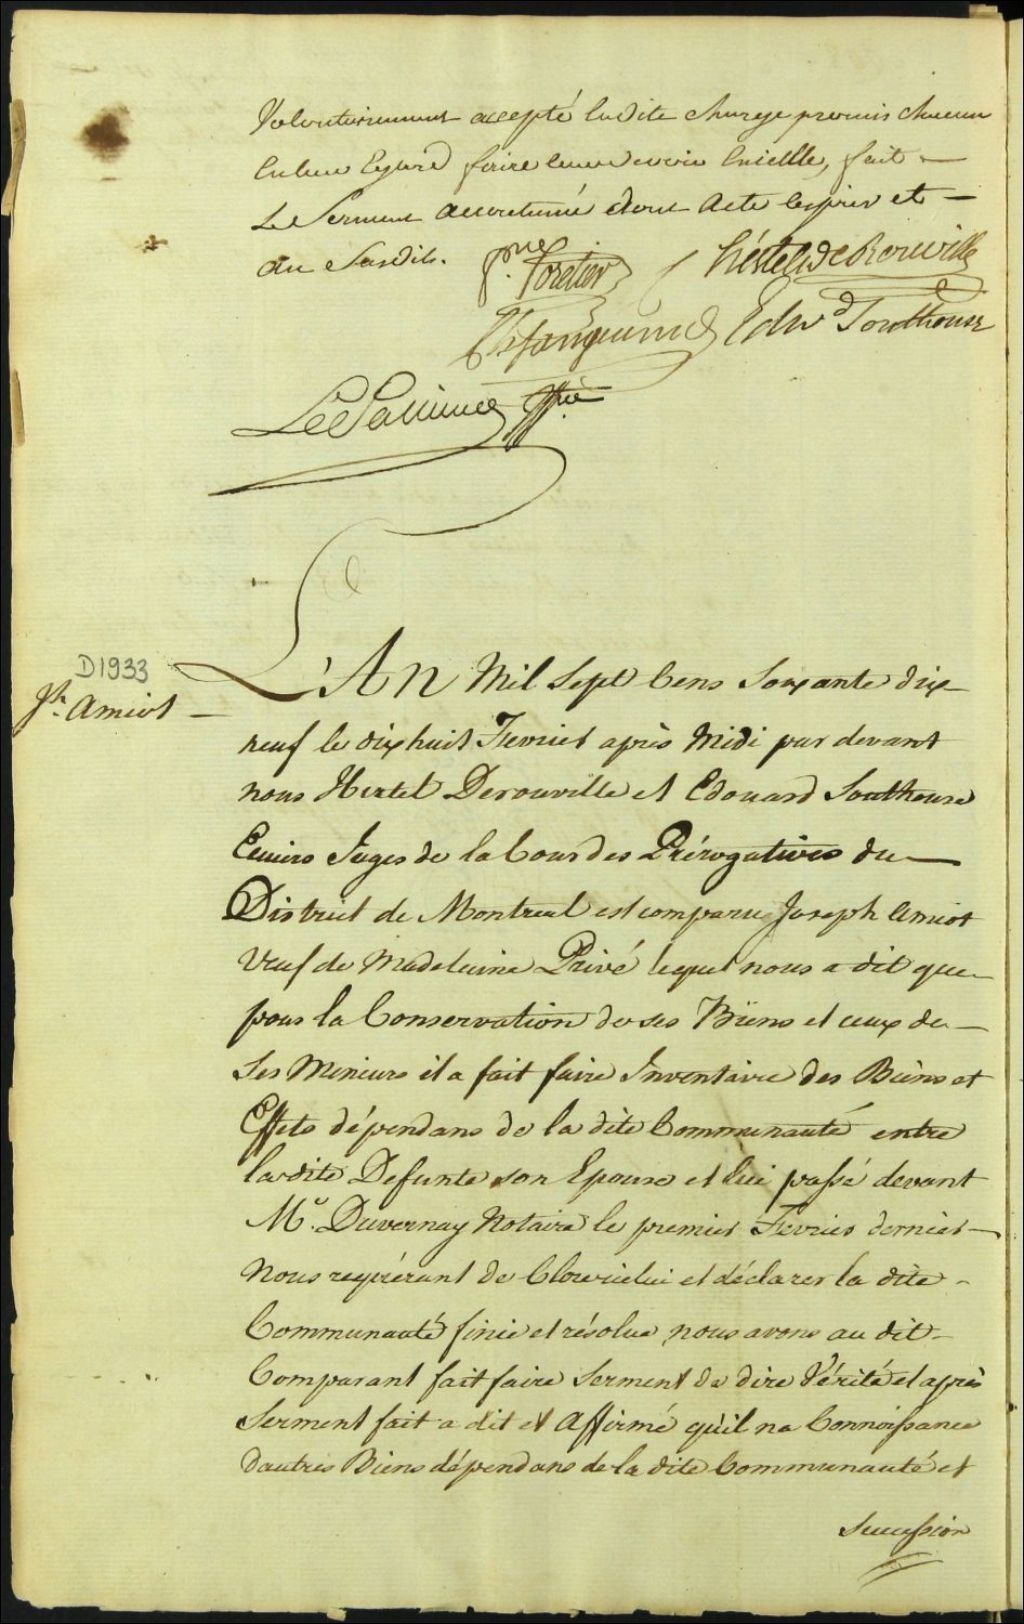 Volontairement accepté ladite charge promis chacun
en leur Egard faire leur devoir en icelle, fait
Le Serment accoutumé dont Acte les jour et
an Susdits.
Pre. Foretier Hertel De Rouville
Edwd. Southouse
LeSaulnier Gffier
D1933
Jh. Amiot
L'An Mil Sept Cens Soixante dix
neuf le dixhuit Fevrier après Midi par devant
nous Hertel Derouville et Edouard Southouse
Ecuiers Juges de la Cour des Prérogatives du
District de Montreal est comparu Joseph Amiot
Veuf de Madeleine Privé lequel nous a dit que
pour la Conservation de ses Biens et ceux de
Ses Mineurs il a fait faire Inventaire des Biens et
Effets dépendans de la dite Communauté entre
la dite Defunte son Epouse et lui passé devant
Mr. Duvernay Notaire le premier Fevrier dernier
Nous requérant de Clore icelui et déclarer la dite
Communauté finie et résolue nous avons au dit
Comparant fait faire Serment de dire Vérité et après
Serment fait a dit et Affirmé qu'il na Connoissance
dautres Biens dépendans de la dite Communauté et
Succession